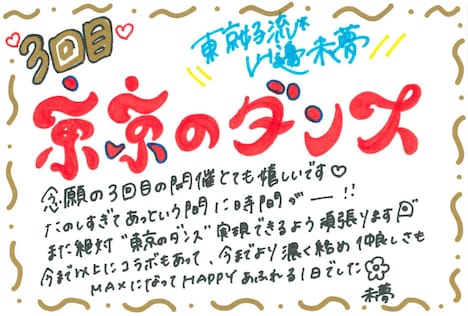 3回目
東京女子流*
山邊未夢
東京のダンス
念願の3回目の開催とても嬉しいです♡
たのしすぎてあっという間に時間がー!!
また絶対"東京のダンス"実現できるよう頑張ります
今まで以上にコラボもあって、今までより濃く絡め仲良しさも
MAXになってHAPPYあふれる1日でした
未夢